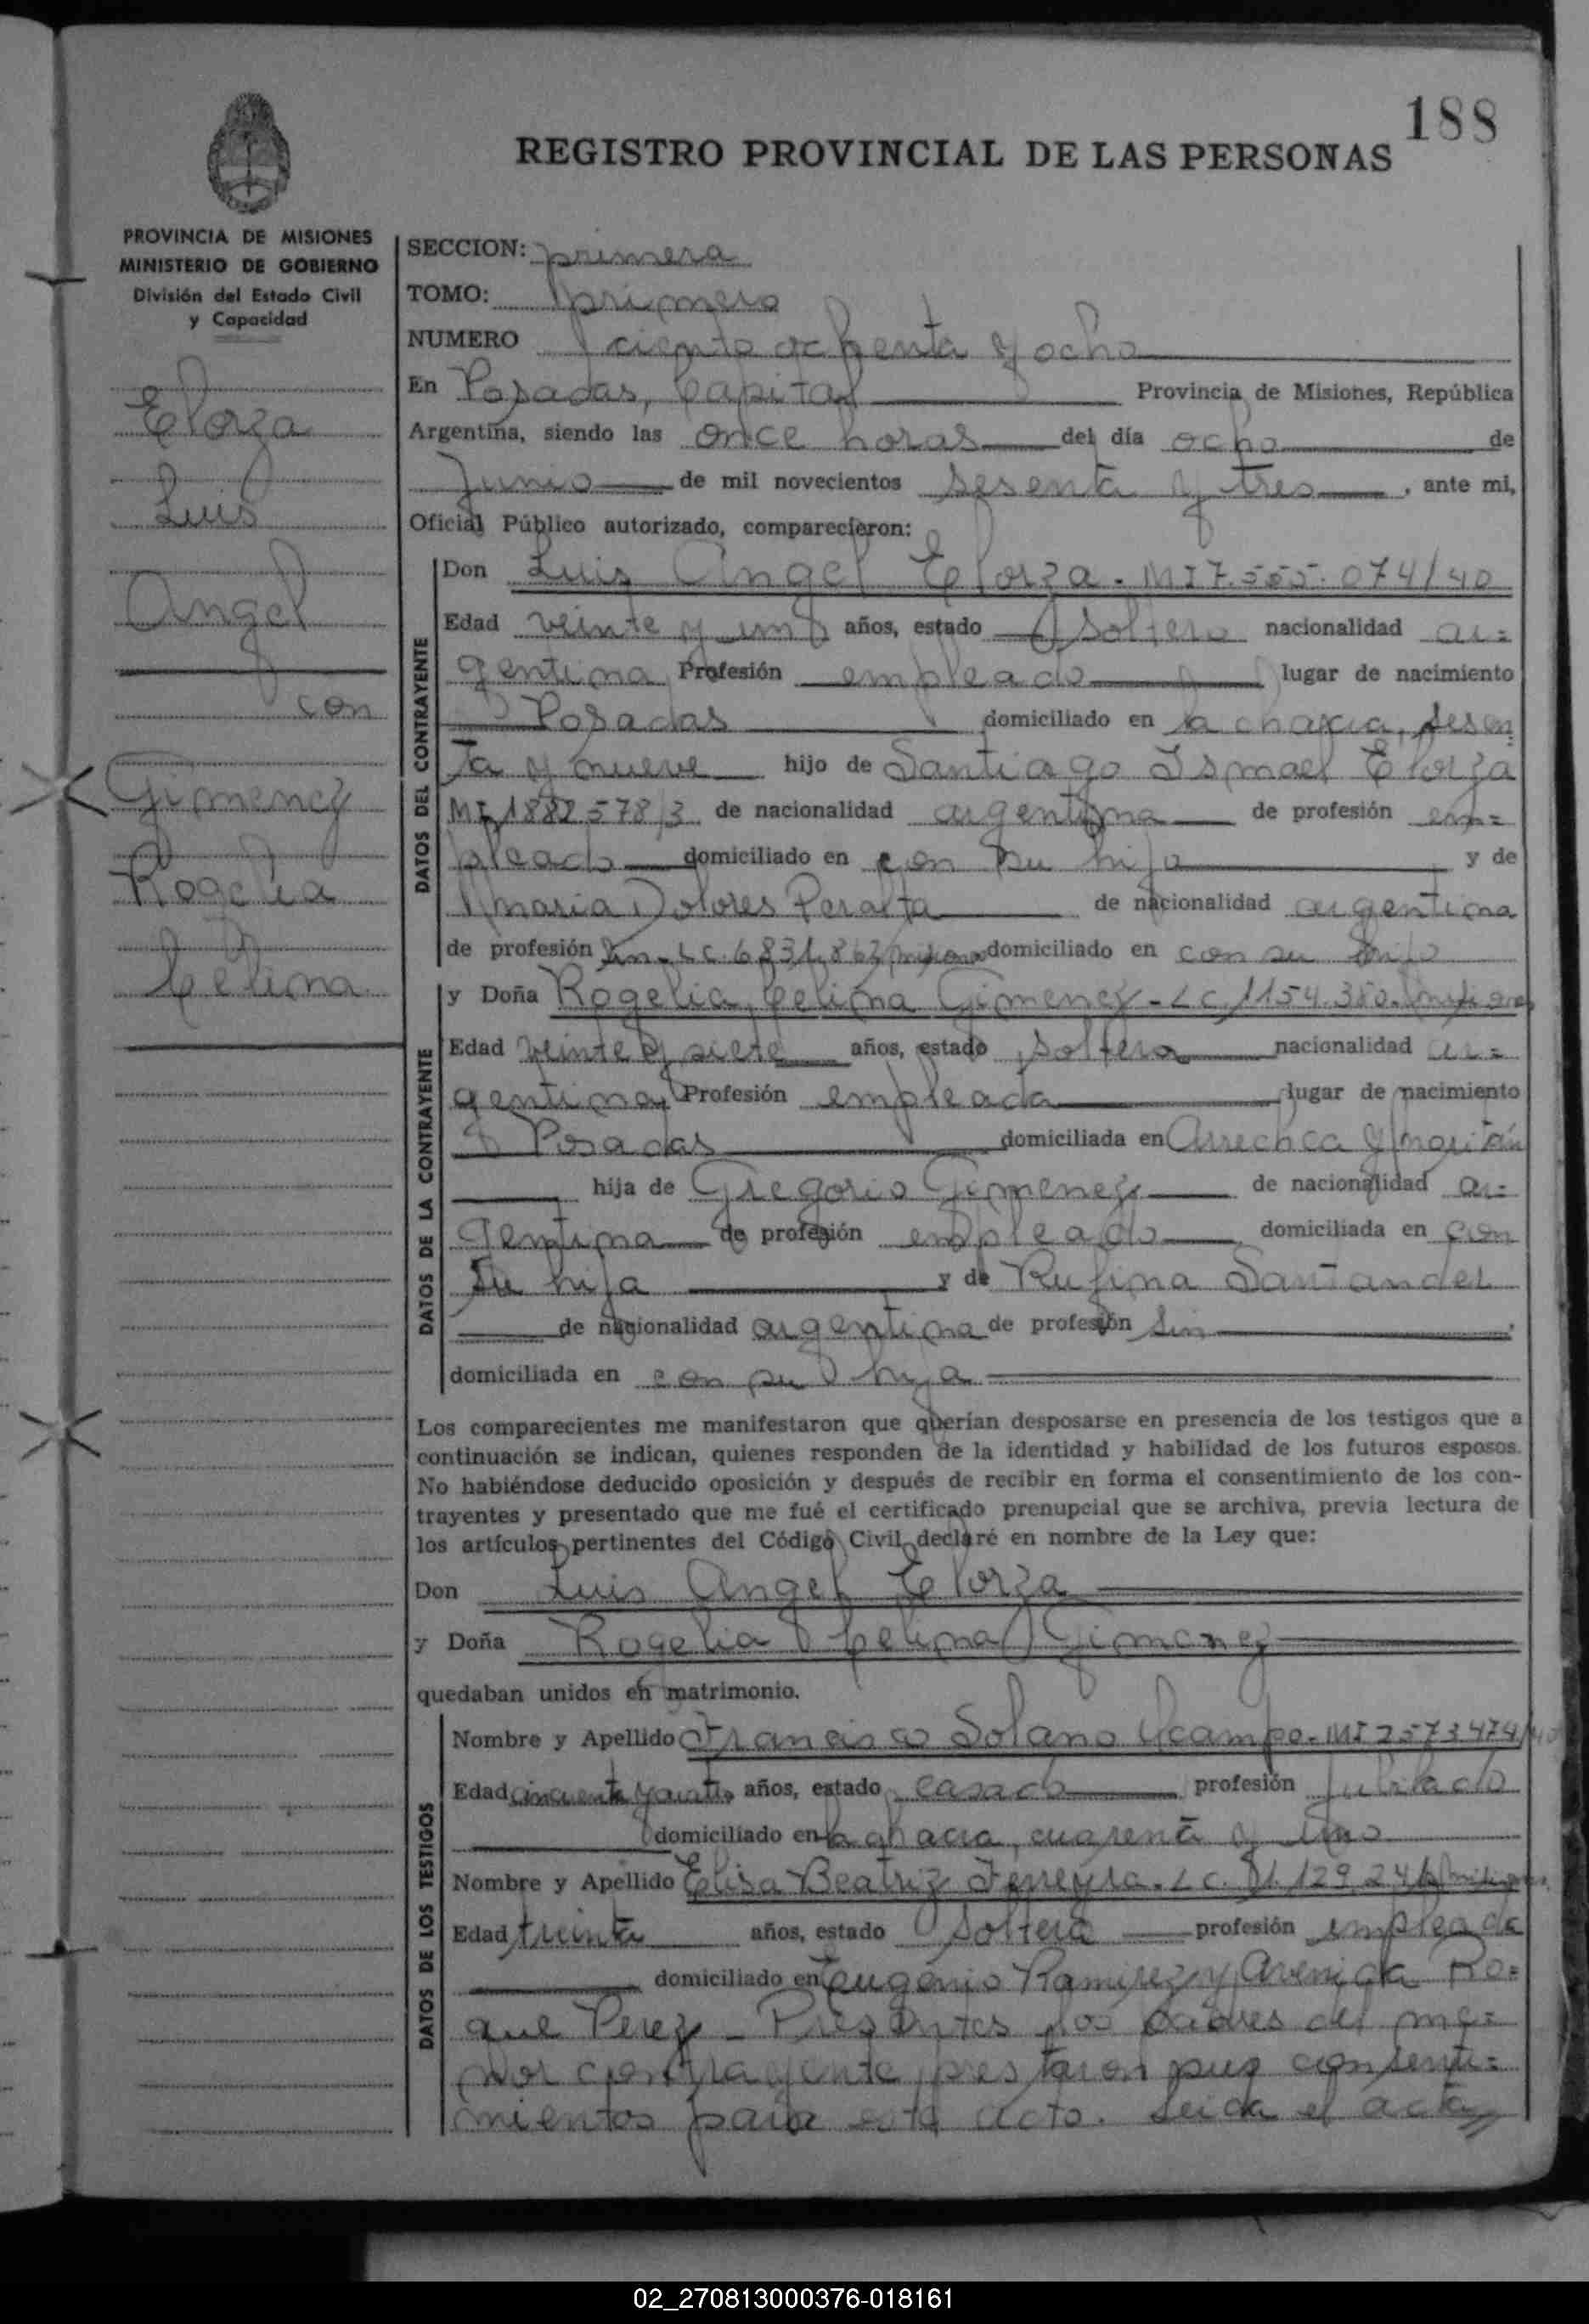 188
REGISTRO PROVINCIAL DE LAS PERSONAS
PROVINCIA DE MISIONES
MINISTERIO DE GOBIERNO
División del Estado Civil
y Capacidad
Elorza
Luis
Angel
con
Gimenez
Rogelia
Celina
SECCION: primera
TOMO: primero
NUMERO ciento ochenta y ocho
En Posadas, Capital Provincia de Misiones, República
Argentina, siendo las once horas del día ocho de
Junio de mil novecientos sesenta y tres, ante mi,
Oficial Público autorizado, comparecieron:
DATOS DEL CONTRAYENTE
Don Luis Angel Elorza - MI 7.555.074/40
Edad veinte y uno años, estado soltero nacionalidad ar=
gentina Profesión empleado lugar de nacimiento
Posadas domiciliado en la chacra, sesen
ta y nueve hijo de Santiago Ismael Elorza
MI 1882.578/3 de nacionalidad argentina de profesión em=
pleado domiciliado en con su hijo y de
Maria Dolores Peralta de nacionalidad argentina
de profesión sin - LC. domiciliado en con su hijo
DATOS DE LA CONTRAYENTE
y Doña Rogelia Celina Gimenez - LC 1154.380. Misiones
Edad veinte y siete años, estado soltera nacionalidad ar=
gentina, Profesión empleada lugar de nacimiento
Posadas domiciliada en Arrechea y
hija de Gregorio Gimenez de nacionalidad ar=
gentina de profesión empleado domiciliada en con
su hija y de Rufina Santander
de nacionalidad argentina de profesión sin
domiciliada en con su hija
Los comparecientes me manifestaron que querían desposarse en presencia de los testigos que a
continuación se indican, quienes responden de la identidad y habilidad de los futuros esposos.
No habiéndose deducido oposición y después de recibir en forma el consentimiento de los con-
trayentes y presentado que me fué el certificado prenupcial que se archiva, previa lectura de
los artículos pertinentes del Código Civil, declaré en nombre de la Ley que:
Don Luis Angel Elorza
y Doña Rogelia Celina Gimenez
quedaban unidos en matrimonio.
DATOS DE LOS TESTIGOS
Nombre y Apellido Francisco Solano Ocampo - MI 2573474/40
Edad cincuenta y cuatro años, estado casado profesión jubilado
domiciliado en la chacra, cuarenta y uno
Nombre y Apellido Elisa Beatriz Ferreyra - LC.
Edad treinta años, estado soltera profesión empleada
domiciliado en Eugenio Ramirez y Avenida Ro=
que Perez - Presentes los padres del me=
nor contrayente prestaron sus consenti=
mientos para este acto. Leida el acta
02_270813000376-018161